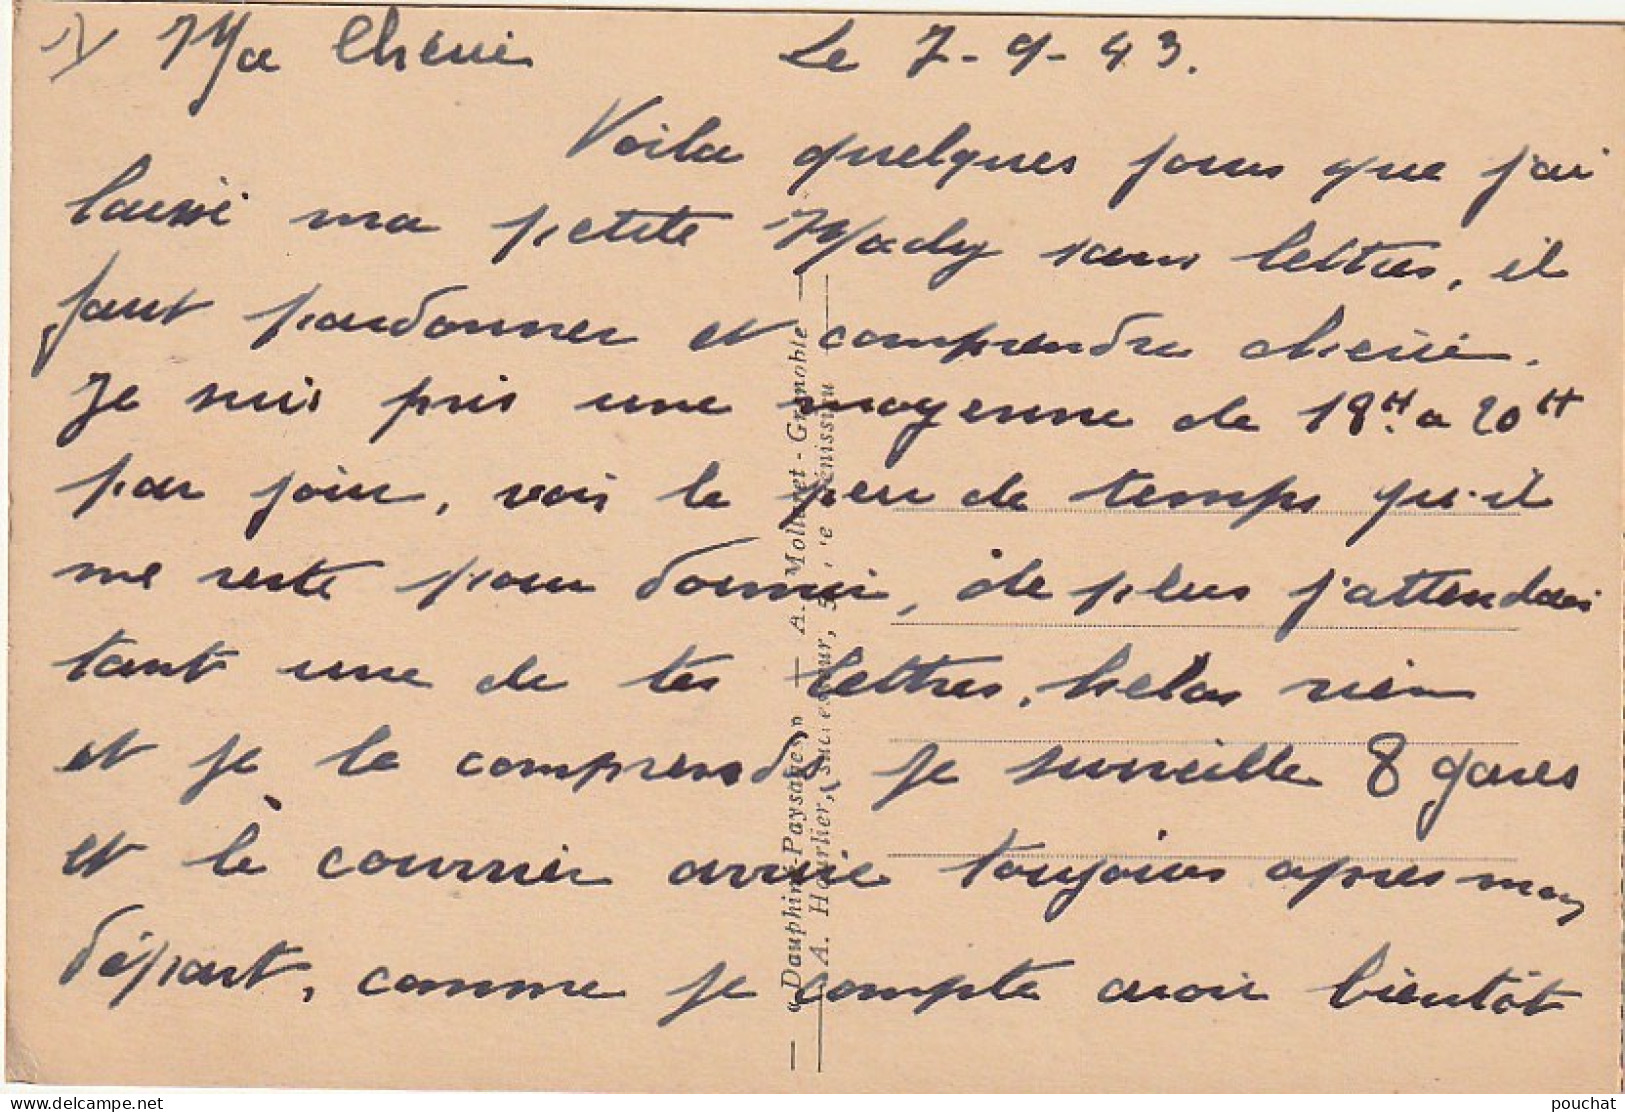 1) Ma Chérie Le 7-9-43.
Voila quelques jours que j'ai
laissé ma petite Mady sans lettres, il
faut pardonner et comprendre chérie.
Je suis pris une moyenne de 18H. a 20H
par jour, vois le peu de temps qu'il
me reste pour dormir, de plus j'attendais
tant une de tes lettres, helas rien
et je le comprends je surveille 8 gares
et le courrier arrive toujours apres mon
départ, comme je compte avoir bientôt
"Dauphiné-Paysages" — A. Mollaret - Grenoble —
A. Hourlier, successeur, 5,
delcampe.net
pouchat